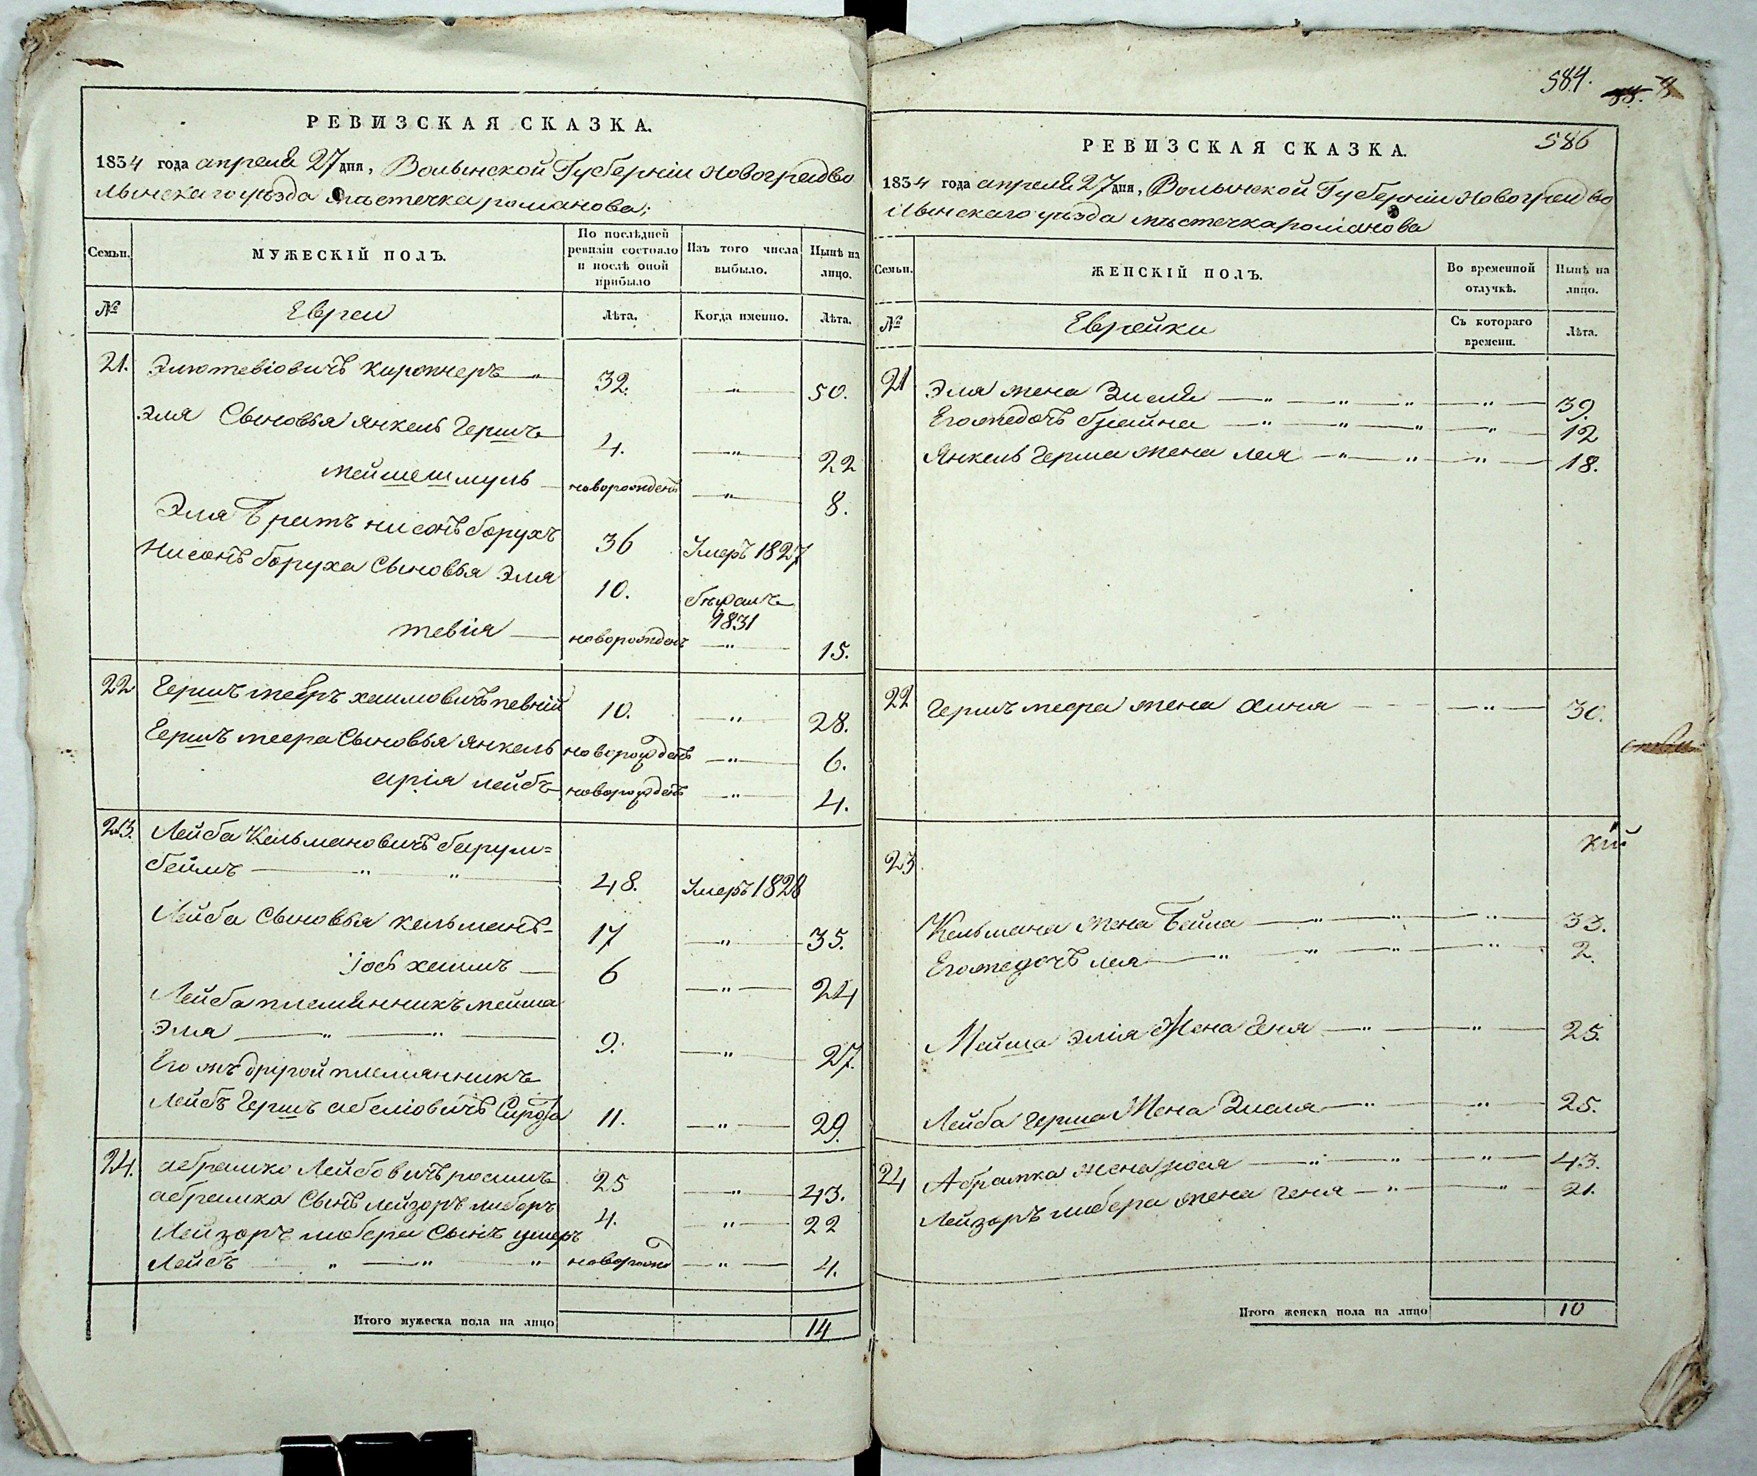 РЕВИЗСКАЯ СКАЗКА.
1834 года апреля 27 дня, Волынской Губерніи Новоградво
лынскаго уѣзда мѣстечка романова;
Семьи.
МУЖЕСКІЙ ПОЛЪ.
По послѣдней ревизіи состояло и послѣ оной прибыло
Изъ того числа выбыло.
Нынѣ на лицо.
№
Евреи
Лѣта.
Когда именно.
Лѣта.
21. Элютевіовичъ 32. — " — 50.
Эля Сыновья Янкель Гершъ 4. — " — 22
мейше шмуль новорожденъ — " — 8.
Эля Братъ нисонъ борухъ 36 Умеръ 1827
Нисонъ боруха Сыновья Эля 10. бѣжалъ 1831
тевія новорожденъ — " — 15.
22 Гершъ мееръ хаимовичъ певній 10. — " — 28.
Гершъ меера Сыновья Янкель новорожденъ — " — 6.
арія лейбъ новорожденъ — " — 4.
23. Лейба Кельмановичъ барум=
беймъ — " — " — 48. Умеръ 1828
Лейба Сыновья кельманъ 17 — " — 35.
Іось хаимъ 6 — " — 24
Лейба племянникъ мейша
Эля — " — " — 9. — " — 27.
Его жъ другой племянникъ
Лейбъ Гершъ абеліовичъ Сирота 11. — " — 29.
24. абрамко Лейбовичъ 25 — " — 43.
абрамка Сынъ лейзоръ либеръ 4. — " — 22
Лейзоръ либера Сынъ ушеръ
Лейбъ — " — " — " новорожд — " — 4.
Итого мужеска пола на лицо 14
584.
586
РЕВИЗСКАЯ СКАЗКА.
1834 года апреля 27 дня, Волынской Губерніи Новоградво
лынскаго уѣзда мѣстечка романова
Семьи.
ЖЕНСКІЙ ПОЛЪ.
Во временной отлучкѣ.
Нынѣ на лицо.
№
Еврейки
Съ котораго времени.
Лѣта.
21 Эля жена Злата — " — " — " — " — 39.
Егожедочъ брайна — " — " — " — " — 12
Янкель Герша жена лея — " — " — " — 18.
22 Гершъ меера жена хиня — " — 30.
кій
23
Кельмана жена Бейла — " — " — " — 33.
Егожедочъ лея — " — " — " — " — 2.
Мейша Элія Жена Геня — " — " — 25.
Лейба Герша Жена Злата — " — " — 25.
24 Абрамка жена рося — " — " — " — 43.
Лейзоръ либера жена геня — " — " — 21.
Итого женска пола на лицо 10